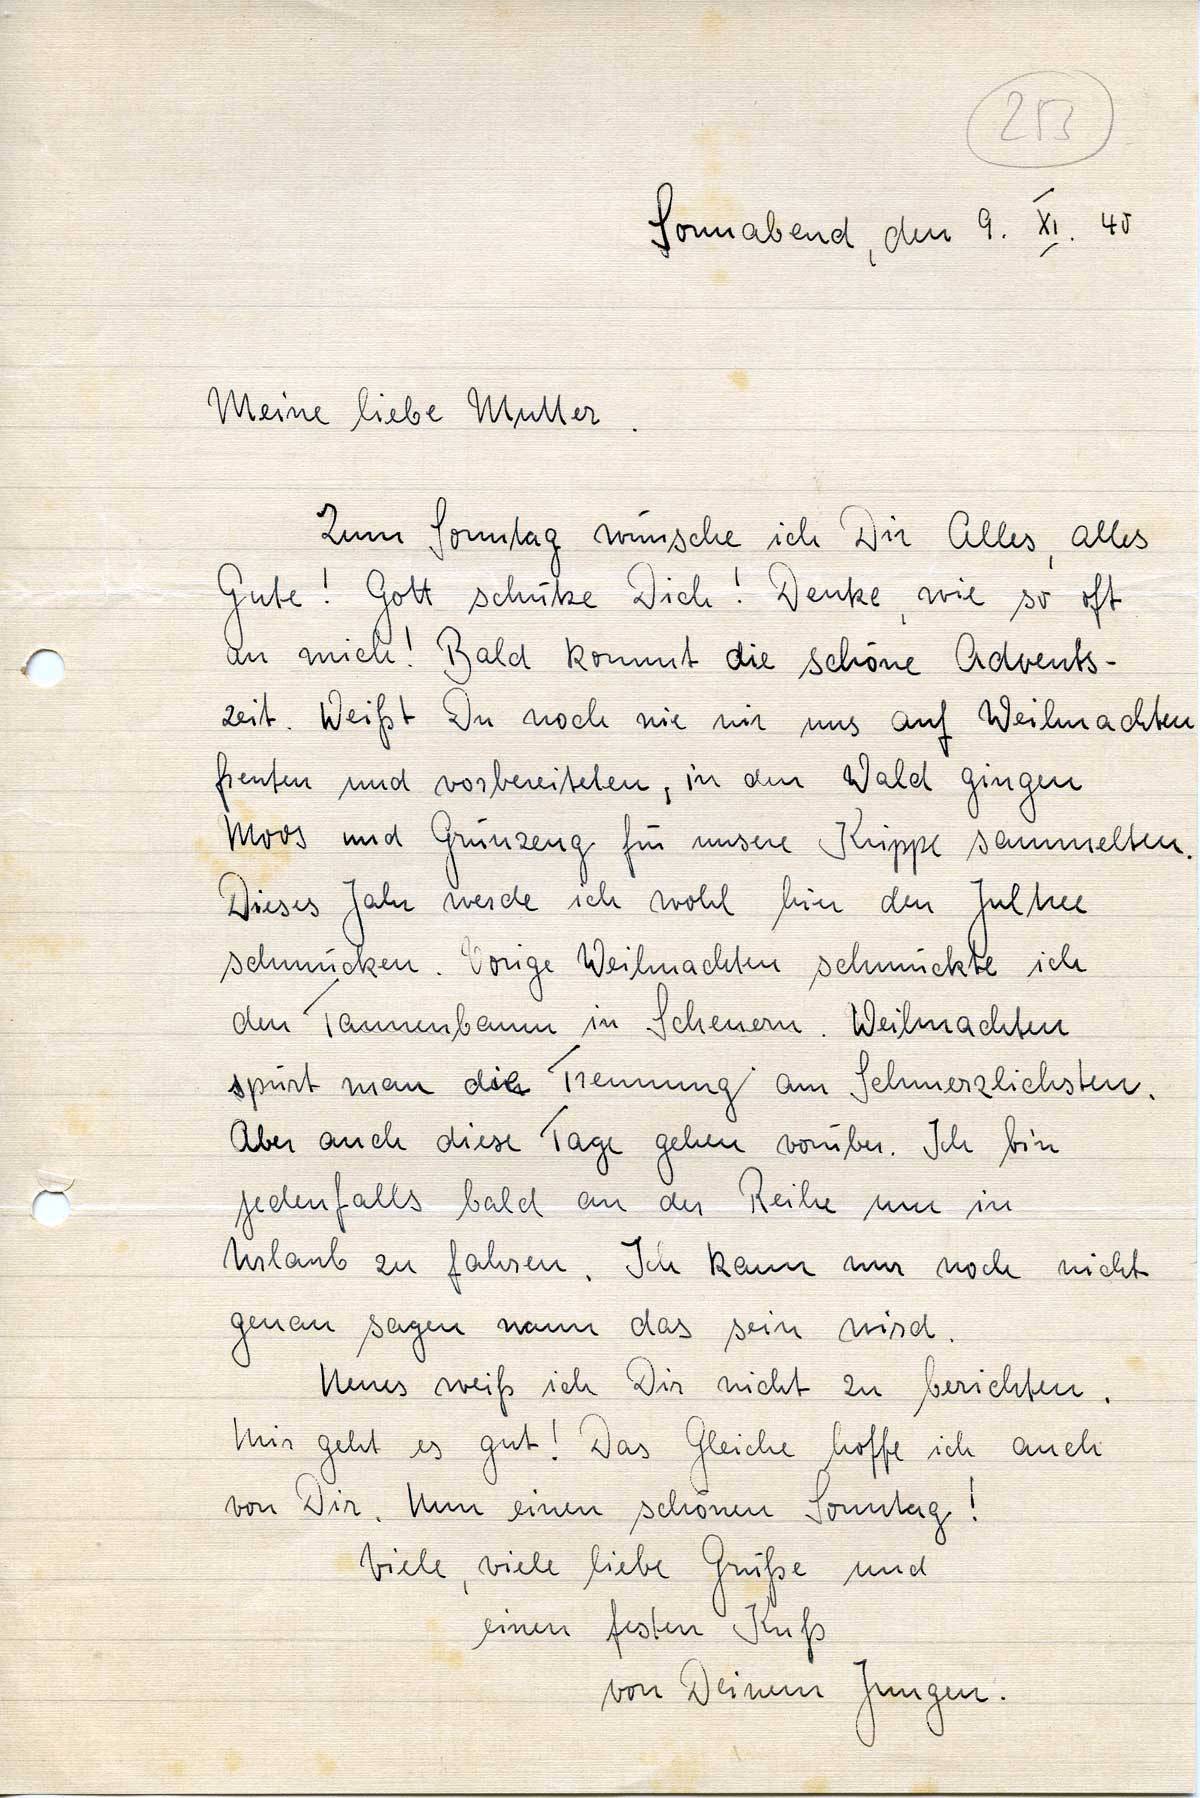 253
Sonnabend, den 9. XI. 40
Meine liebe Mutter.
Zum Sonntag wünsche ich Dir Alles, alles
Gute! Gott schütze Dich! Denke, wie so oft
an mich! Bald kommt die schöne Advents-
zeit. Weißt Du noch wie wir uns auf Weihnachten
freuten und vorbereiteten, in den Wald gingen
Moos und Grünzeug für unsere Krippe sammelten.
Dieses Jahr werde ich wohl hier den Julbaum
schmücken. Vorige Weihnachten schmückte ich
den Tannenbaum in Scheuern. Weihnachten
spürt man die Trennung am Schmerzlichsten.
Aber auch diese Tage gehen vorüber. Ich bin
jedenfalls bald an der Reihe um in
Urlaub zu fahren. Ich kann nur noch nicht
genau sagen wann das sein wird.
Neues weiß ich Dir nicht zu berichten.
Mir geht es gut! Das Gleiche hoffe ich auch
von Dir. Nun einen schönen Sonntag!
Viele, viele liebe Grüße und
einen festen Kuß
von Deinem Jungen.